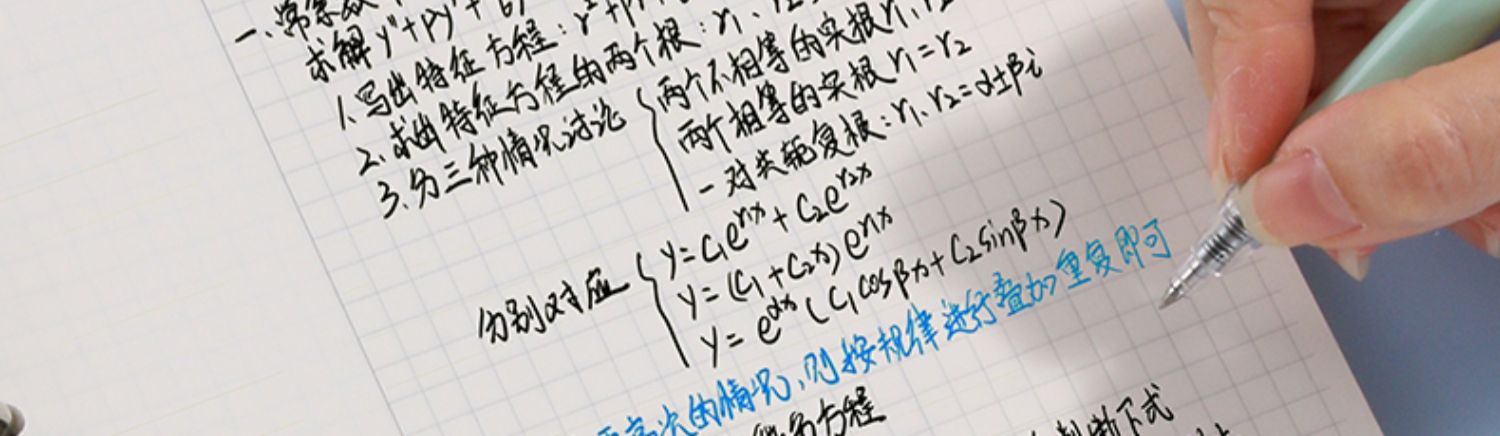 一、常系数
求解 y''+py'+
1.写出特征方程:r²+pr+
2.求出特征方程的两个根:r₁、r₂
3.分三种情况讨论
两个不相等的实根r₁、r₂
两个相等的实根r₁=r₂
一对共轭复根:r₁、r₂=α±βi
分别对应
y=C₁e^{r₁x}+C₂e^{r₂x}
y=(C₁+C₂x)e^{r₁x}
y=e^{αx}(C₁cosβx+C₂sinβx)
高次的情况,则按规律进行叠加重复即可
方程
判断下式